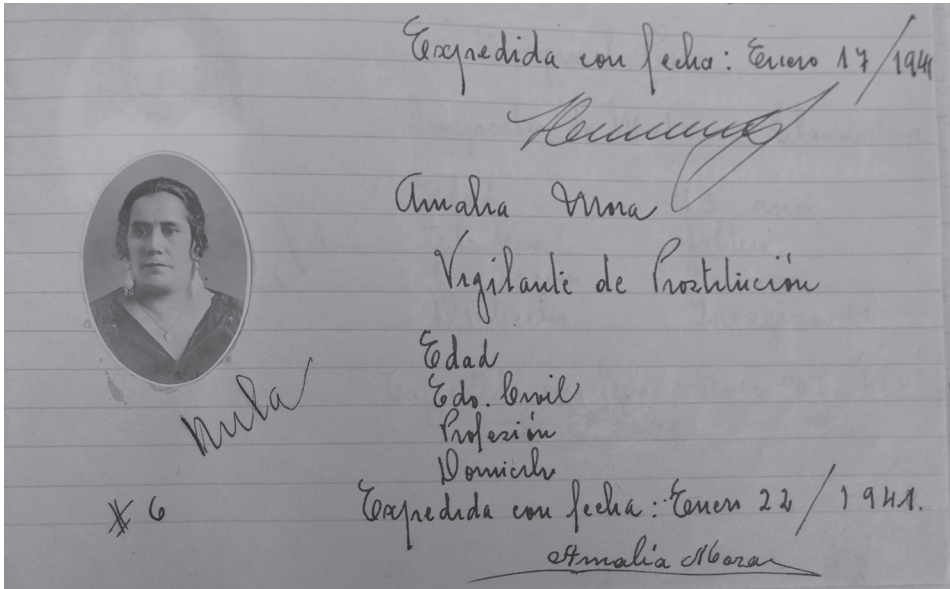 Expedida con fecha: Enero 17/1941
Amalia Mora
Vigilante de Prostitución
Edad
Edo. Civil
Profesión
Domicilio
Nula
# 6
Expedida con fecha: Enero 22/1941.
Amalia Mora